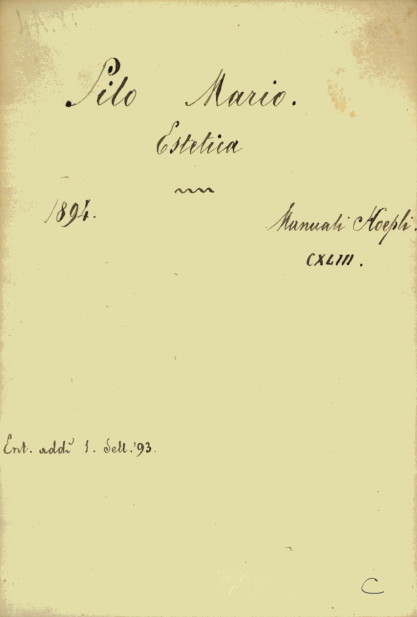 Pilo Mario.
Estetica
1894.
Manuali Hoepli.
CXLIII.
Ent. addì 1. Sett. '93.
C